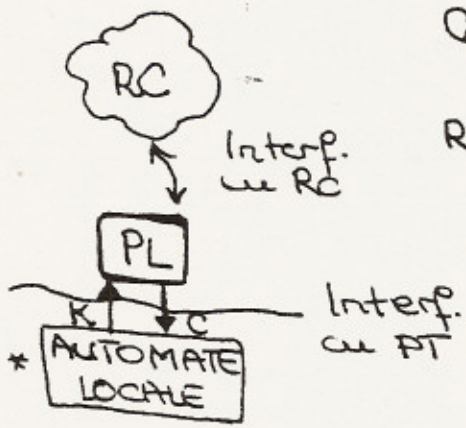 RC
Interf.
cu RC
PL
K C
Interf.
cu PT
* AUTOMATE
LOCALE
R